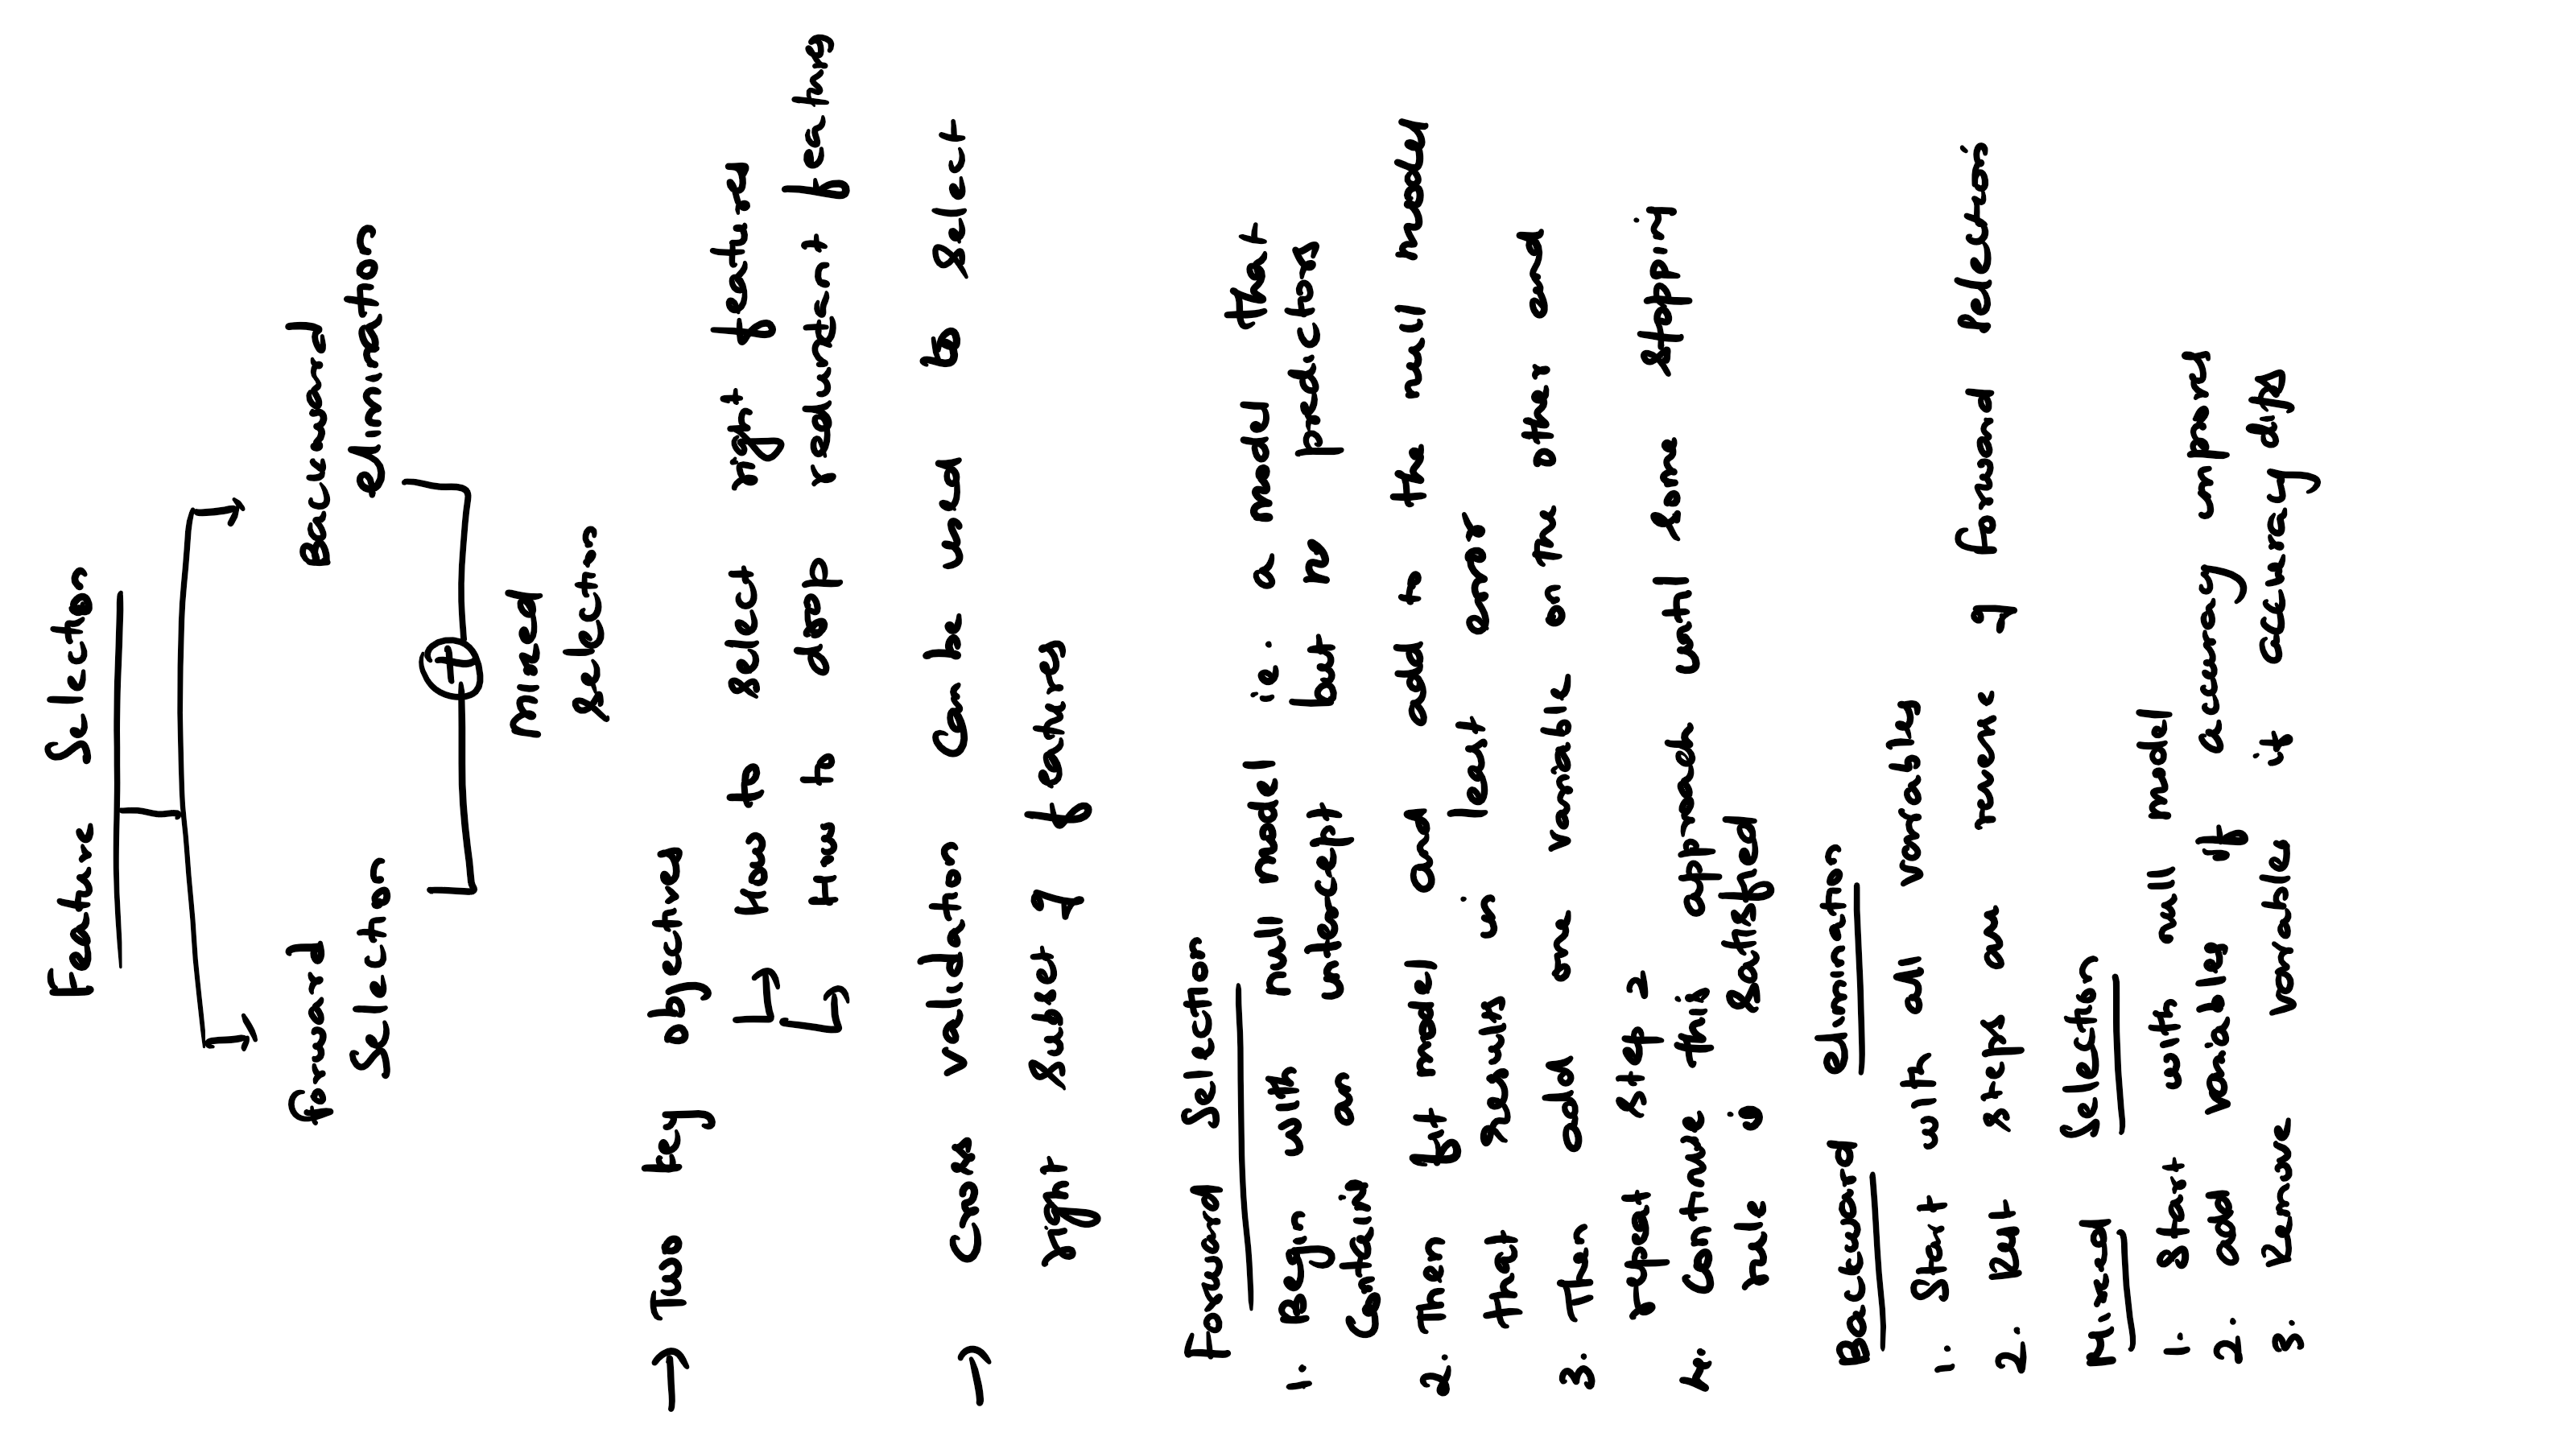 Feature Selection
Forward
Selection
Backward
elimination
+
Mixed
selection
→ Two key objectives
↳ How to select right features
↳ How to drop reduntant features
→ Cross validation can be used to select
right subset of features
Forward Selection
1. Begin with null model ie. a model that
contains an intercept but no predictors
2. Then fit model and add to the null model
that results in least error
3. Then add one variable on the other and
repeat step 2
4. Continue this approach until some stopping
rule is satisfied
Backward elimination
1. Start with all variables
2. Rest steps are reverse of forward selection
Mixed Selection
1. Start with null model
2. add variables if accuracy improves
3. Remove variables if accuracy dips